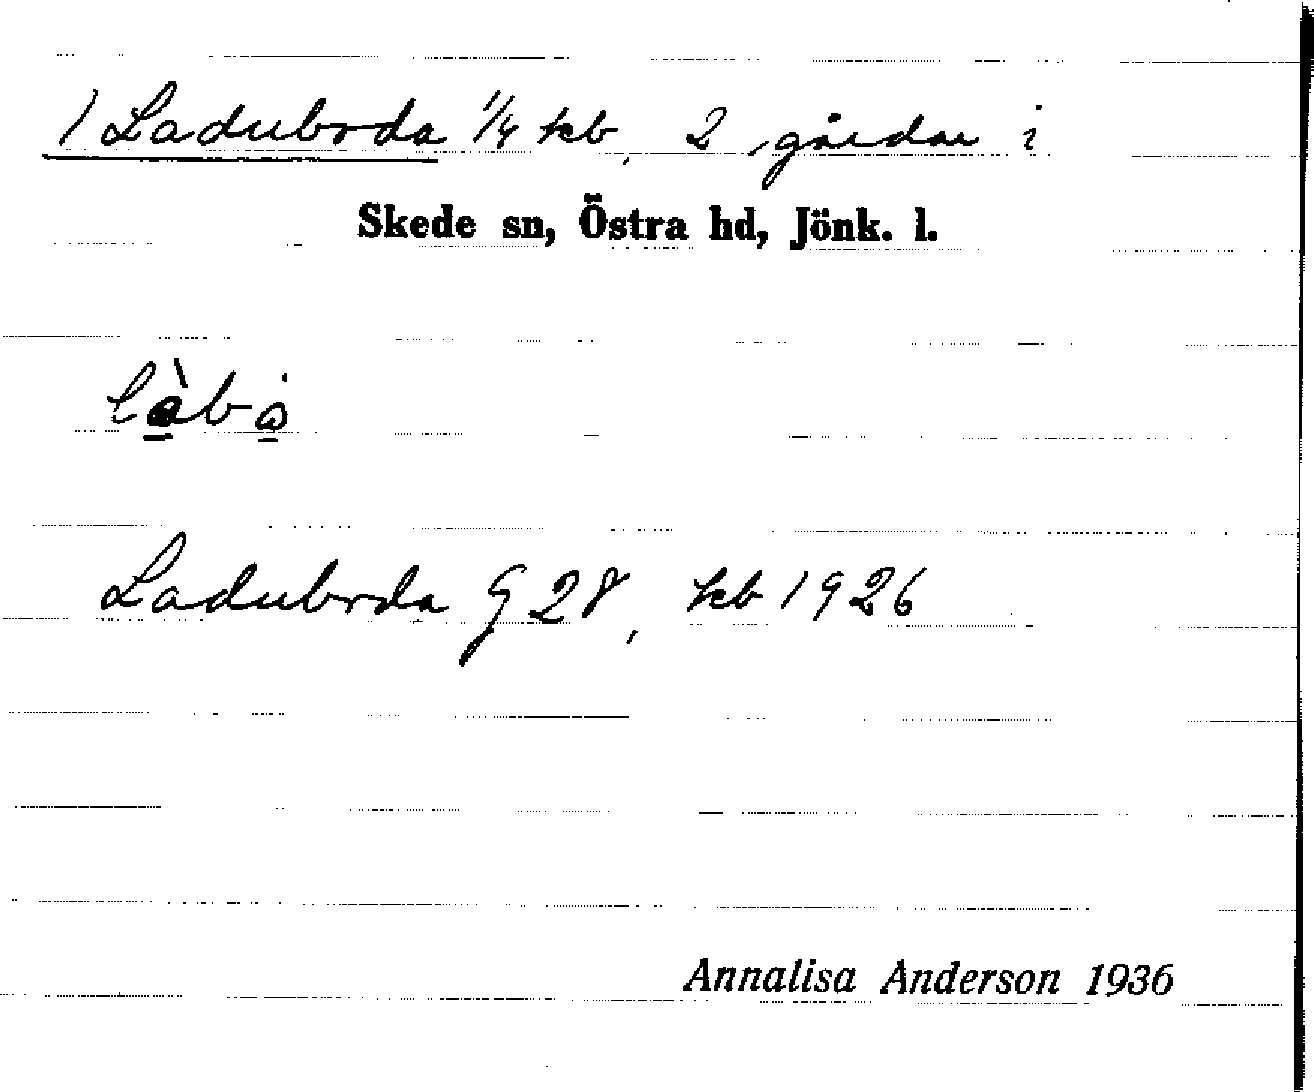 1 Laduboda 1/4 kb, 2 gårdar i
Skede sn, Östra hd, Jönk. l.
Laduboda G 28, kb 1926
Annalisa Anderson 1936